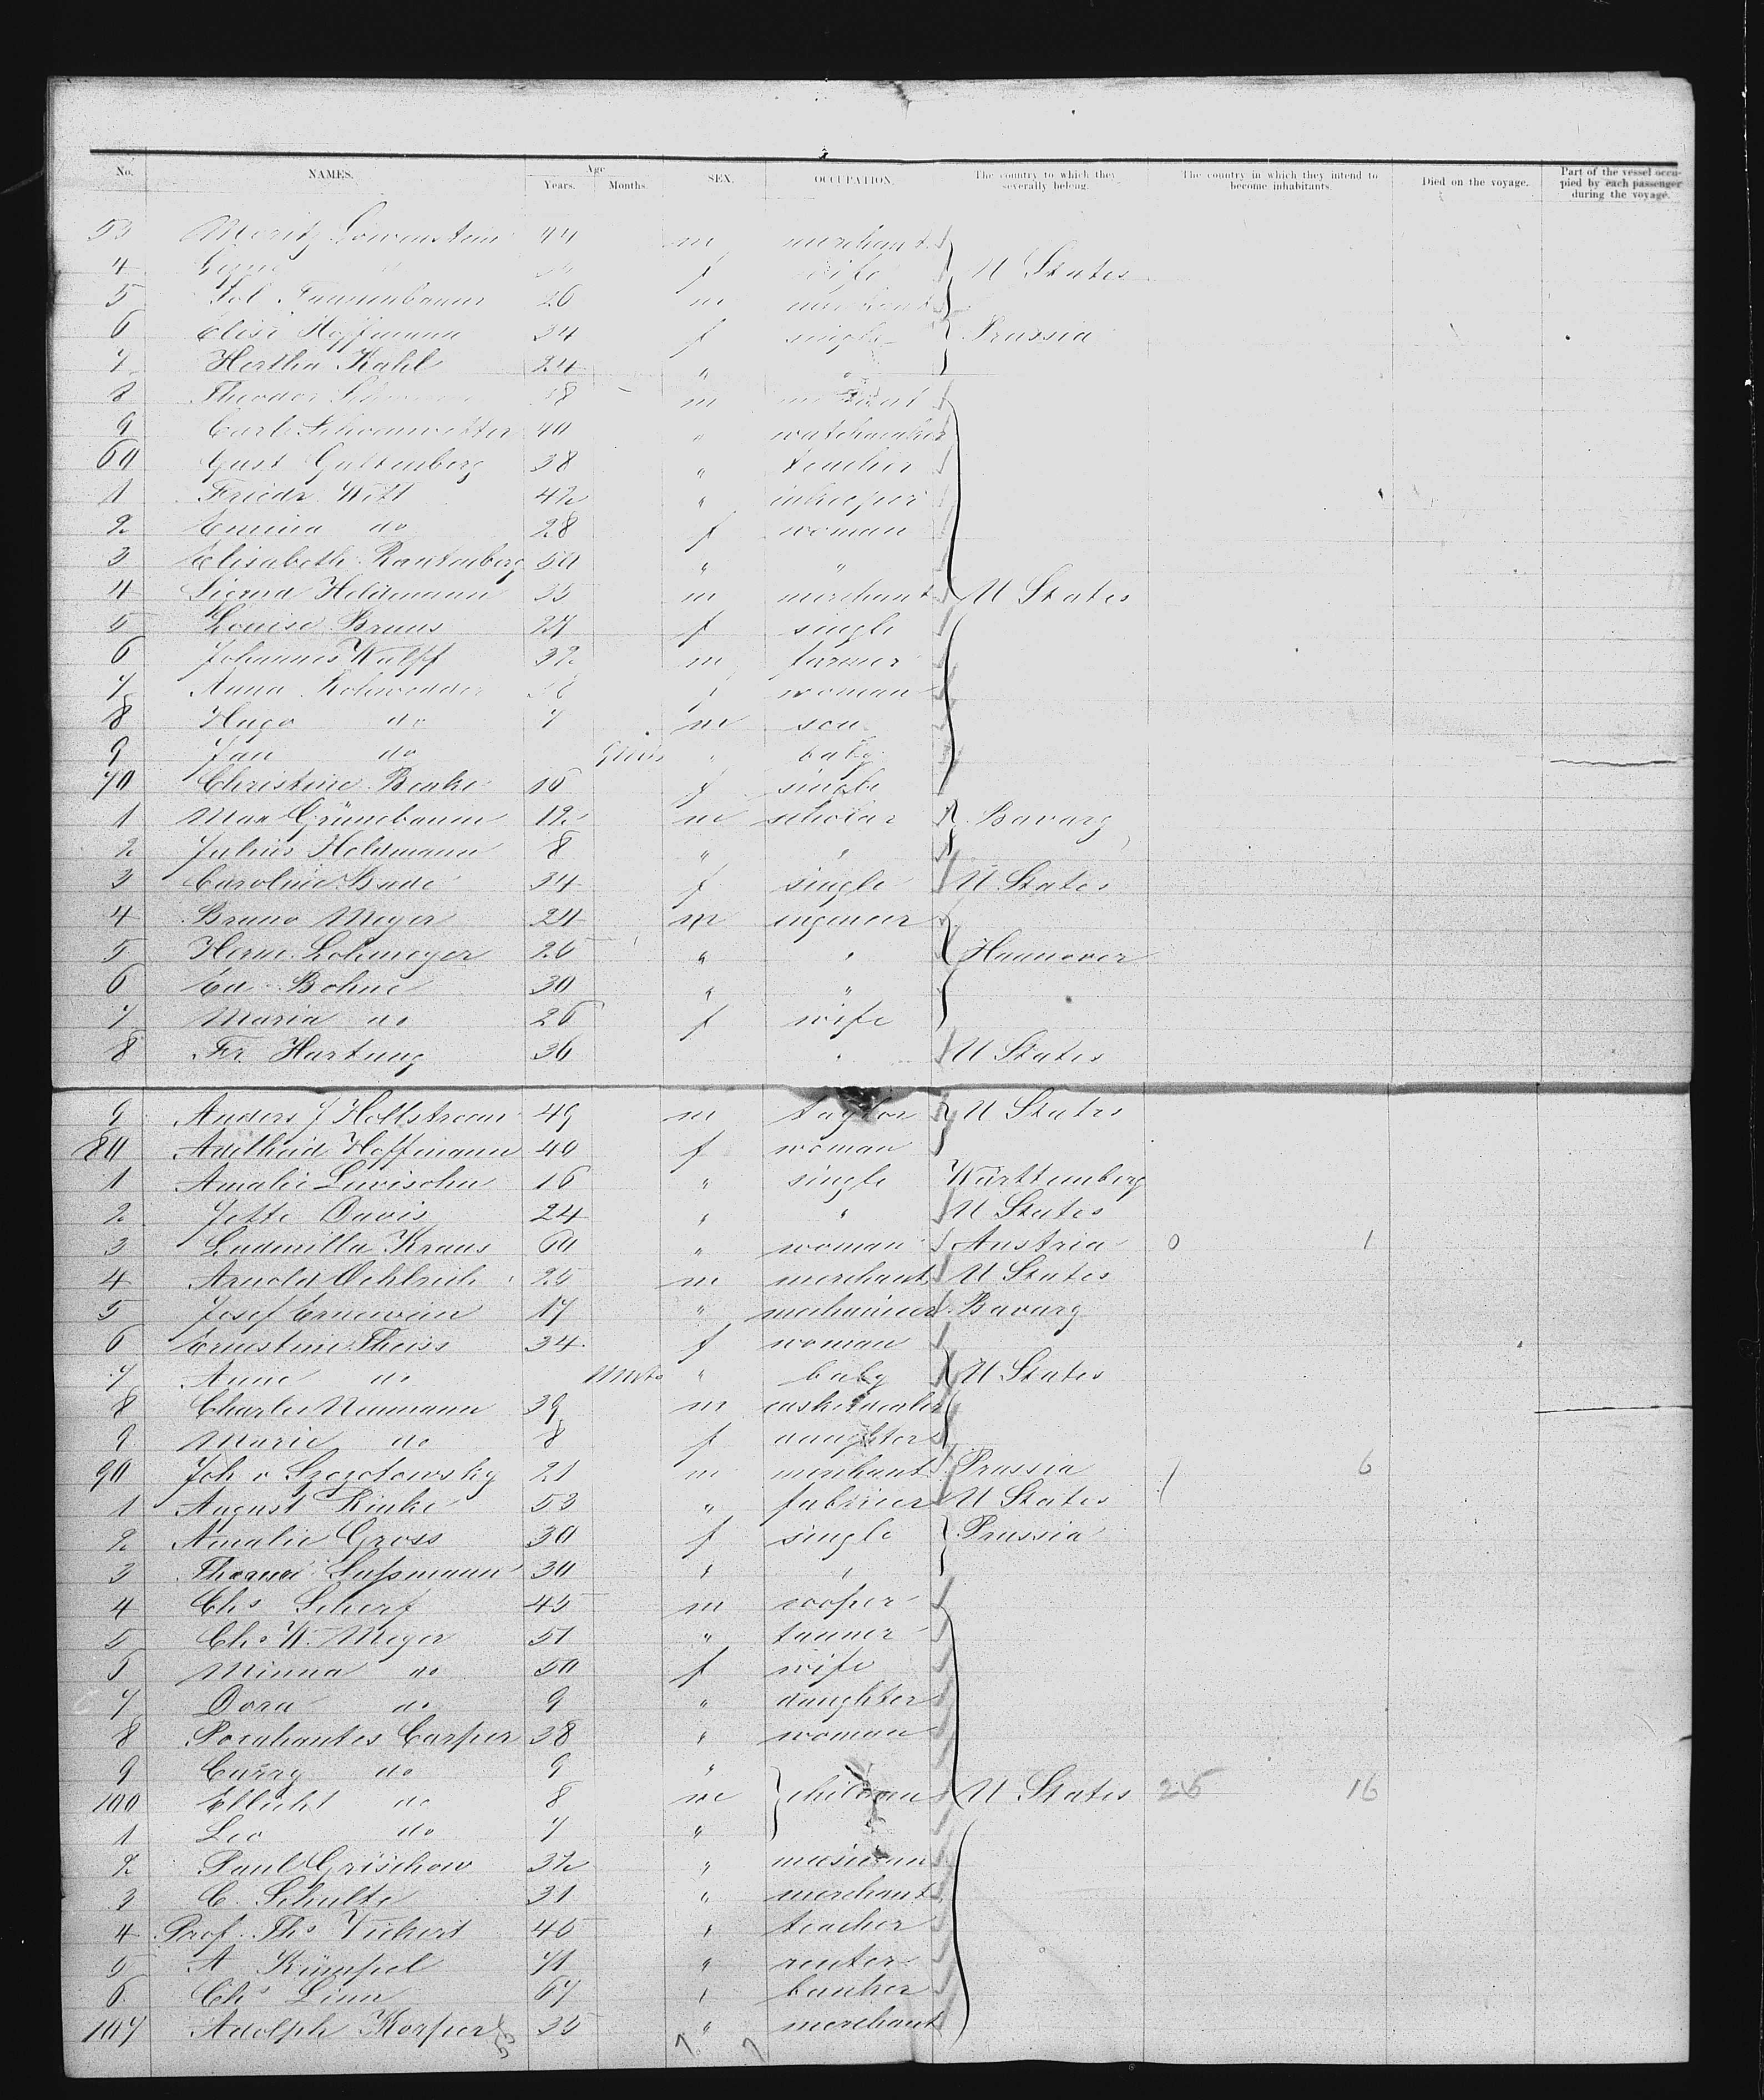 No. NAMES. Age Years. Months. SEX. OCCUPATION. The country to which they severally belong. The country in which they intend to become inhabitants. Died on the voyage. Part of the vessel occupied by each passenger during the voyage.
53 Moritz Lowenstein 44 m merchant
4 f wife U States
5 Tannenbaum 26 m merchant
6 Elise Hoffmann 34 f single Prussia
7 Hertha Kahl 24 " "
8 Theodor m
9 Carl Schoenwetter 40 " watchmaker
60 Gust Guttenberg 38 " teacher
1 Friedr Witt 42 " inkeeper
2 Emma do 28 f woman
3 Elisabeth Rautenberg 50 " "
4 Heldmann 35 m merchant U States
5 Louise Bruns 27 f single
6 Johannes Wulff 32 m farmer
7 Anna Rohwedder woman
8 Hugo do 7 m son
9 Jan do " baby
70 Christine Beake 16 f single
1 Max Grünebaum 12 m scholar Bavary
2 Julius Heldmann 8 " "
3 Caroline Bade 34 f single U States
4 Bruno Meyer 24 m engineer
5 Herm. Lohmeyer 26 " " Hannover
6 Ed Bohne 30 " "
7 Maria do 26 f wife
8 Fr. Hartung 36 " U States
9 Anders J Hellstroem 49 m taylor U States
80 Adelheid Hoffmann 40 f woman
1 Amalie Levisohn 16 " single Württemberg
2 Jette Davis 24 " " U States
3 Ludmilla Kraus 60 " woman Austria 0 1
4 Arnold Oehlrich 25 m merchant U States
5 Josef 17 " Bavary
6 Ernestine Theiss 34 f woman
7 Anne do " baby U States
8 Charles Neumann 39 m
9 Marie do 8 f daughter
90 Joh v Szczotowsky 21 m merchant Prussia 1 6
1 August Rinke 53 " U States
2 Amalie Gross 30 f single Prussia
3 Sussmann 30 " "
4 Chs Scherf 45 m cooper
5 Chs W. Meyer 51 " tanner
6 Minna do 50 f wife
7 Dora do 9 " daughter
8 Pocahantes Casper 38 " woman
9 do 9 "
100 do 8 m children U States 26 16
1 Leo do 7 "
2 Paul Grischow 32 " musician
3 C. Schulte 31 " merchant
4 Prof. Ths Vickert 46 " teacher
5 A Kümpel 71 " renter
6 Chs Linn 67 " banker
107 Adolph Korper 35 " merchant